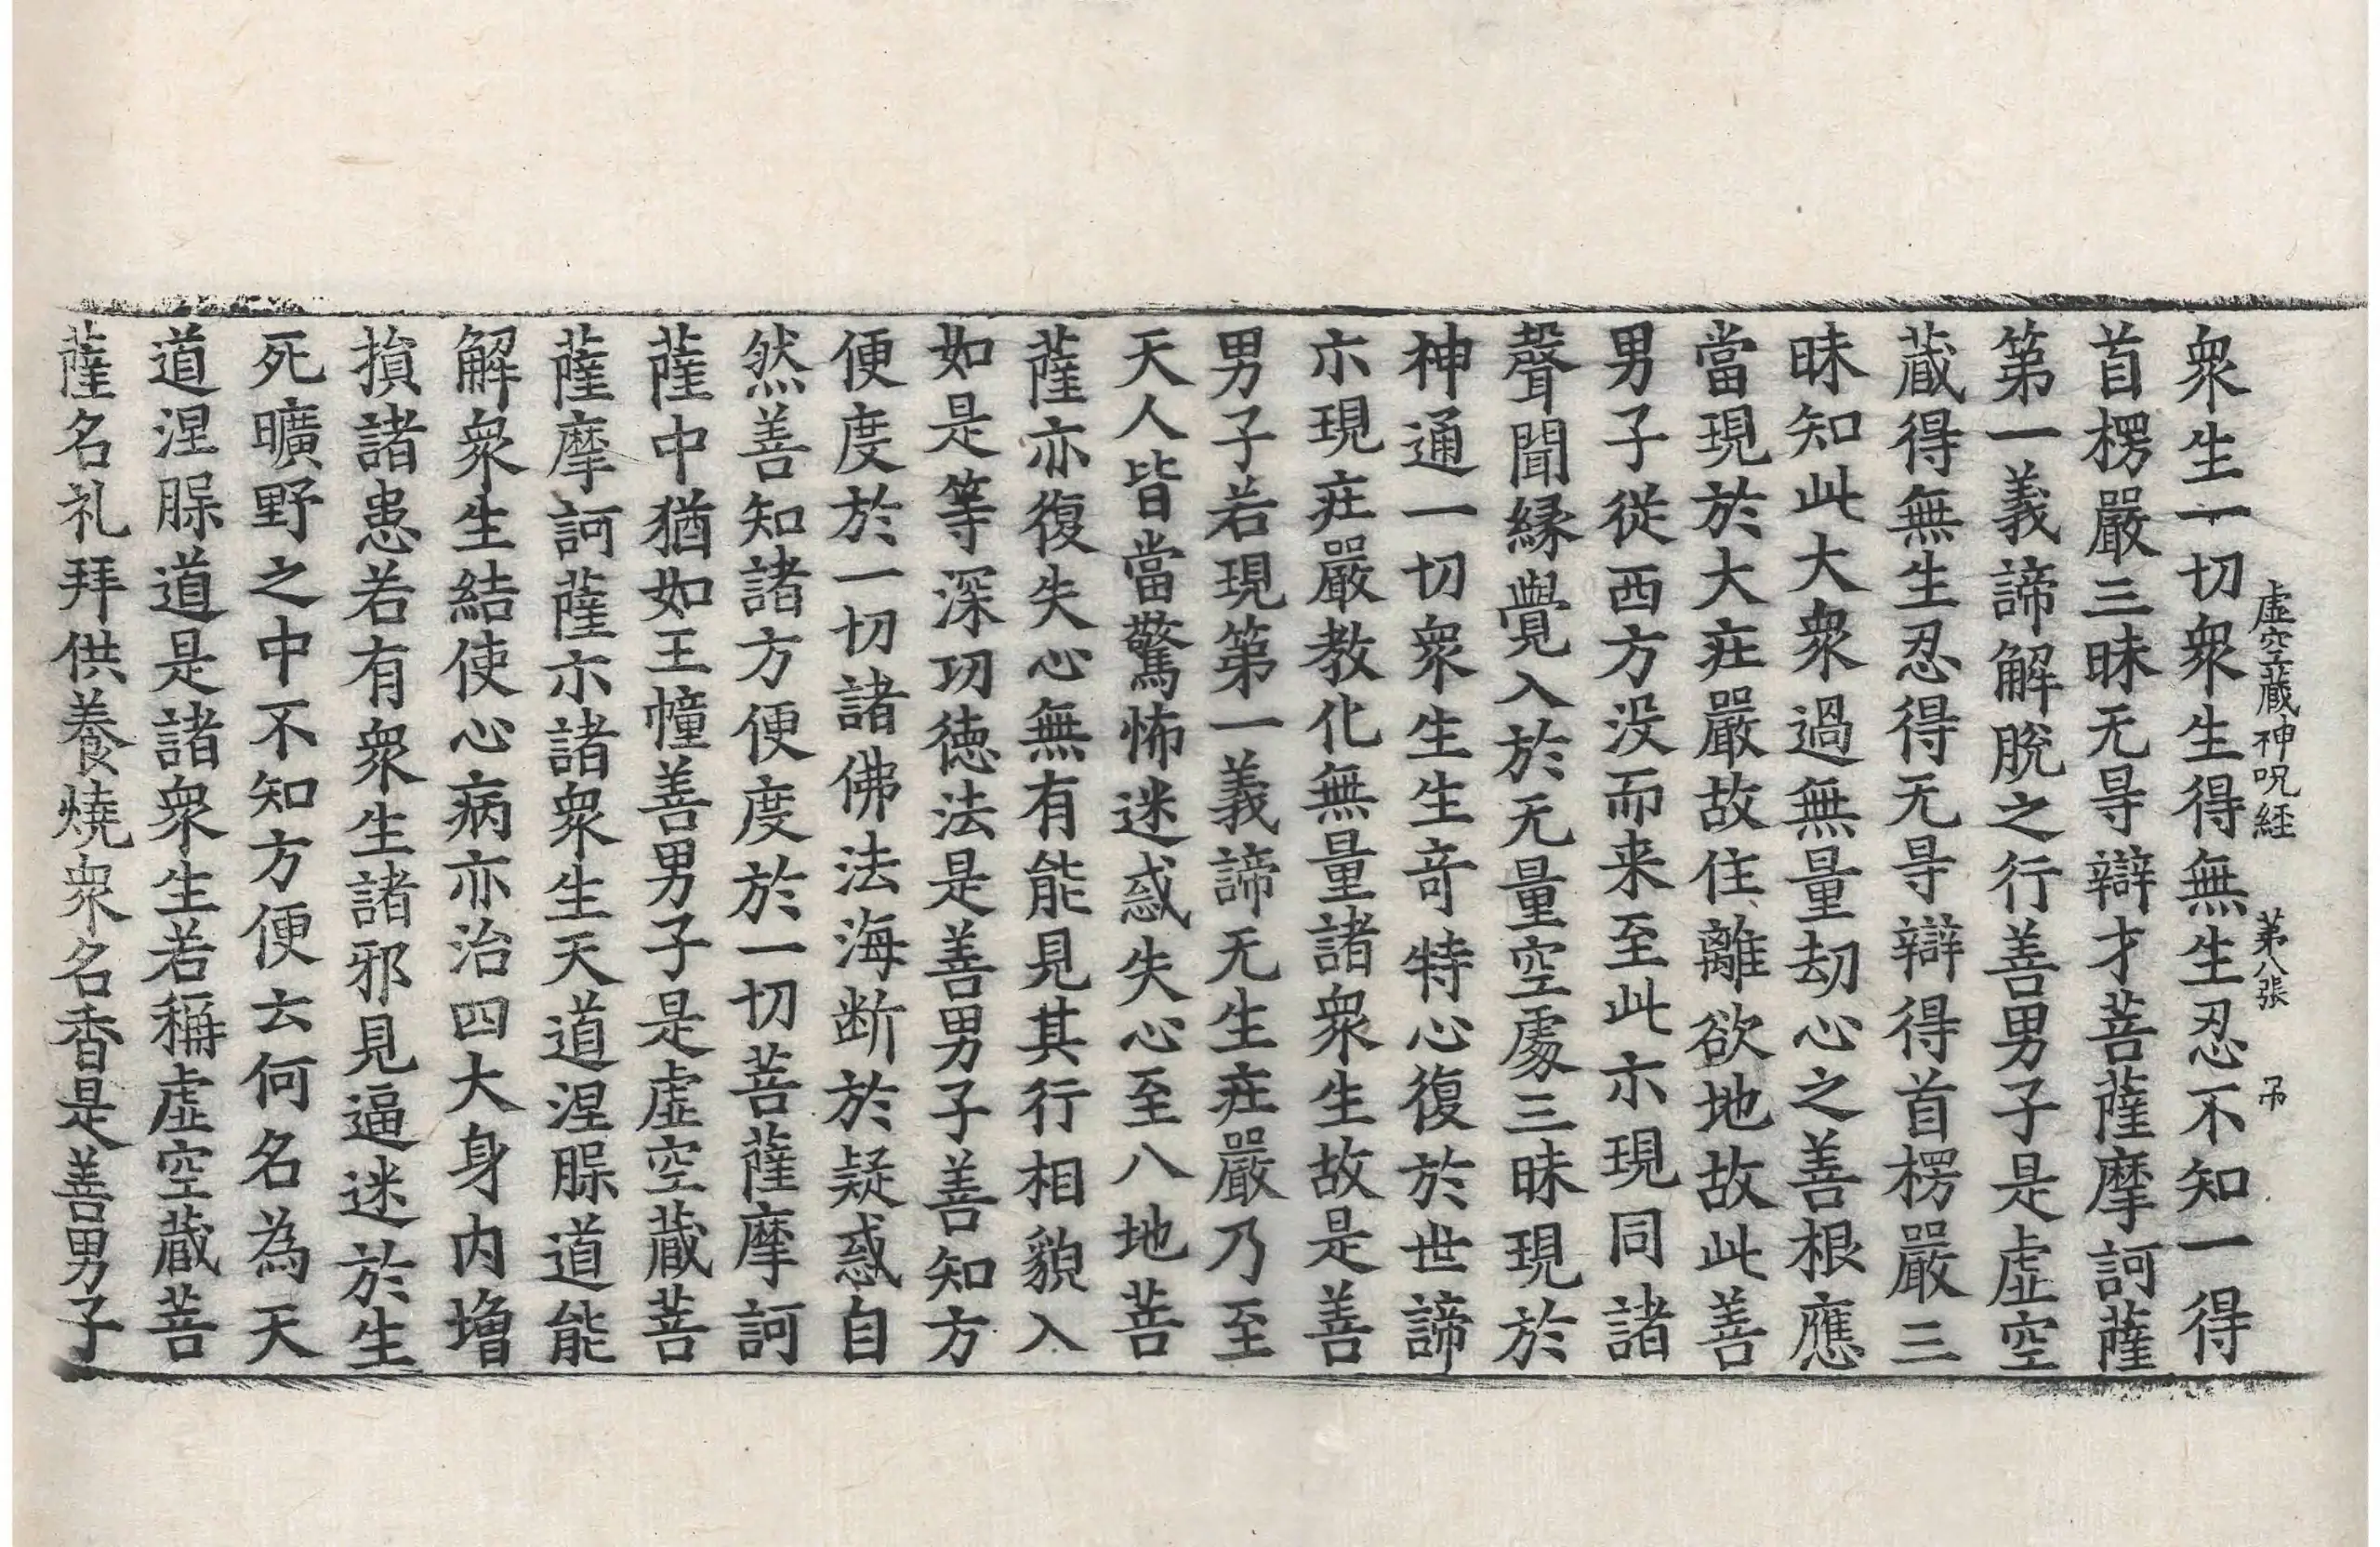 虛空蔵神呪経　第八張　吊
衆生一切衆生得無生忍不知一得
首楞嚴三昧无㝵辯才菩薩摩訶薩
第一義諦解脫之行善男子是虛空
蔵得無生忍得无㝵辯得首楞嚴三
昧知此大衆過無量劫心之善根應
當現於大庄嚴故住離欲地故此善
男子從西方没而来至此亦現同諸
聲聞縁覺入於无量空處三昧現於
神通一切衆生生竒特心復於世諦
亦現庄嚴教化無量諸衆生故是善
男子若現第一義諦无生庄嚴乃至
天人皆當驚怖迷惑失心至八地菩
薩亦復失心無有能見其行相貌入
如是等深㓛徳法是善男子善知方
便度於一切諸佛法海断於疑惑自
然善知諸方便度於一切菩薩摩訶
薩中猶如王幢善男子是虛空蔵菩
薩摩訶薩亦諸衆生天道涅脲道能
解衆生結使心病亦治四大身内増
損諸患若有衆生諸邪見逼迷於生
死曠野之中不知方便云何名為天
道涅脲道是諸衆生若稱虛空蔵菩
薩名礼拜供養燒衆名香是善男子